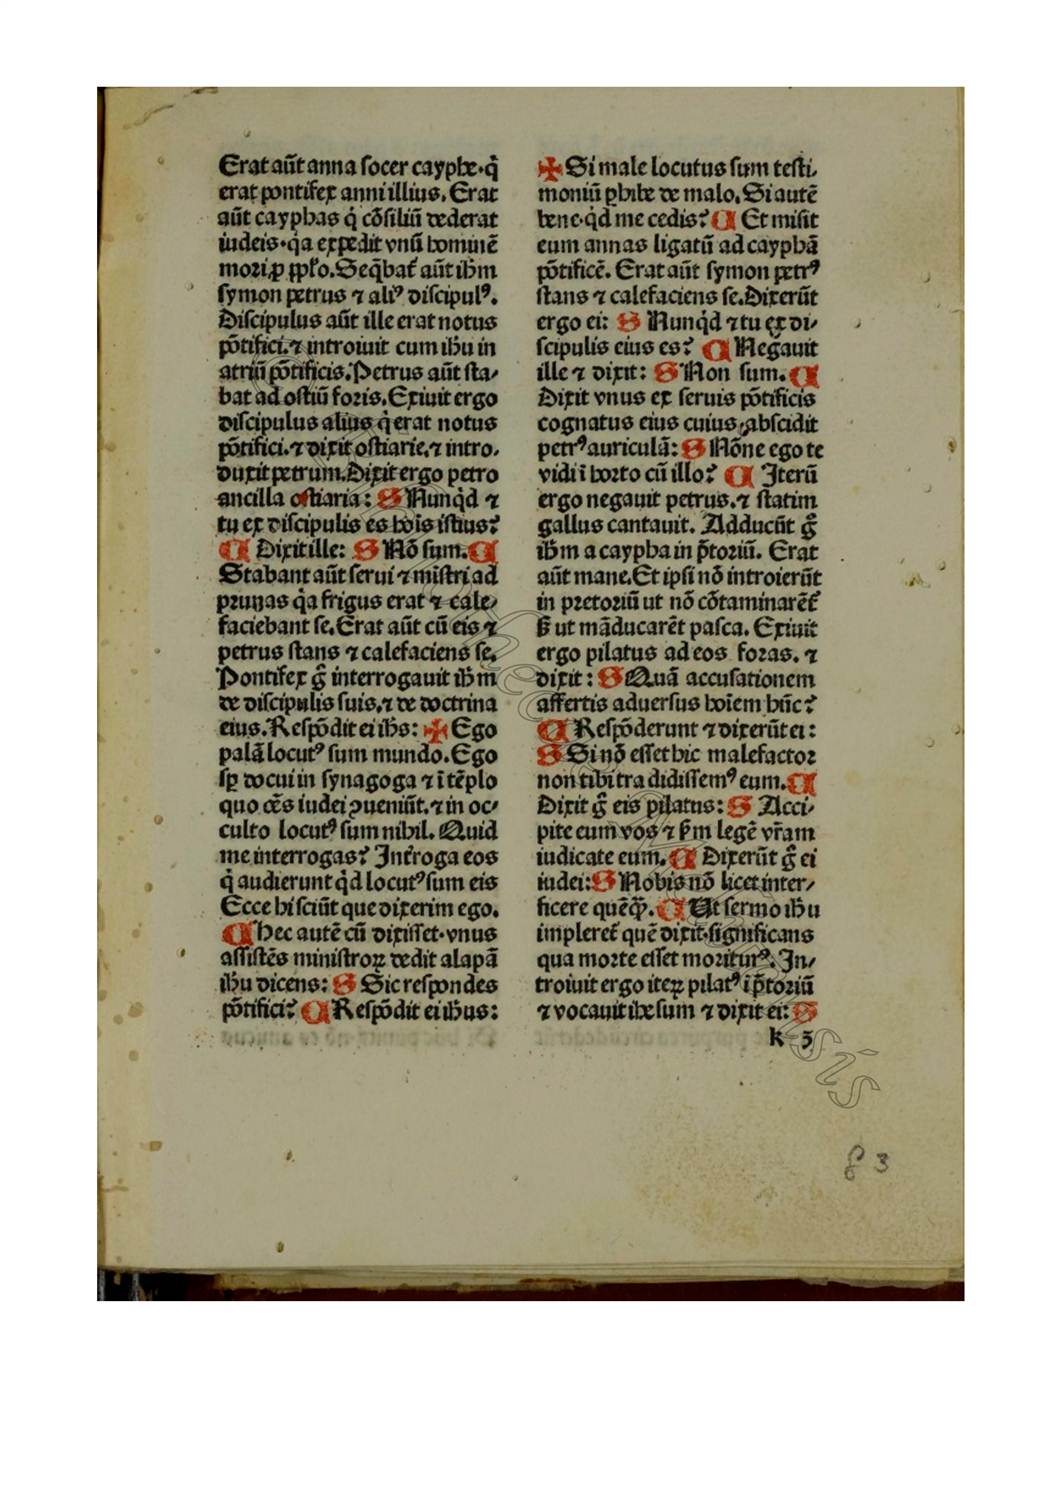 Erat aūt anna socer cayphe·q̇
erat pontifex anni illius. Erat
aūt cayphas q̇ cōsiliū dederat
iudeis·q̇a expedit vnū hominē
mori ꝓ pplo. Seq̄bat᷑ aūt ihm̄
symon petrus ⁊ aliꝰ discipulꝰ.
Discipulus aūt ille erat notus
pōtifici.⁊ introiuit cum ihū in
atriū pōtificis. Petrus aūt sta⸗
bat ad ostiū foris. Exiuit ergo
discipulus alius q̇ erat notus
pōtifici.⁊ dixit ostiarie.⁊ intro⸗
duxit petrum. Dixit ergo petro
ancilla ostiaria: S Nunq̇d ⁊
tu ex discipulis es hoīs istius?
C Dixit ille: S Nō sum. C
Stabant aūt serui ⁊ mīstri ad
prunas q̇a frigus erat ⁊ cale⸗
faciebant se. Erat aūt cū eis ⁊
petrus stans ⁊ calefaciens se.
Pontifex g̃ interrogauit ihm̄
de discipulis suis.⁊ de doctrina
eius. Respōdit ei ihs: ✠ Ego
palā locutꝰ sum mundo. Ego
sp̄ docui in synagoga ⁊ ī tēplo
quo oēs iudei ꝯueniūt.⁊ in oc⸗
culto locutꝰ sum nihil. Quid
me interrogas? Int᷑roga eos
q̇ audierunt q̇d locutꝰ sum eis
Ecce hi sciūt que dixerim ego.
C Hec autē cū dixisset·vnus
assistēs ministroꝝ dedit alapā
ihū dicens: S Sic respondes
pōtifici? C Respōdit ei ihus:
✠ Si male locutus sum testi⸗
moniū ꝑhibe de malo. Si autē
bene·q̇d me cedis? C Et misit
eum annas ligatū ad cayphā
pōtificē. Erat aūt symon petrꝰ
stans ⁊ calefaciens se. Dixerūt
ergo ei: S Nunq̇d ⁊ tu ex di⸗
scipulis eius es? C Negauit
ille ⁊ dixit: S Non sum. C
Dixit vnus ex seruis pōtificis
cognatus eius cuius abscidit
petrꝰ auriculā: S Nōne ego te
vidi ī horto cū illo? C Iterū
ergo negauit petrus.⁊ statim
gallus cantauit. Adducūt g̃
ihm̄ a caypha in p̄toriū. Erat
aūt mane. Et ipsi nō introierūt
in pretoriū ut nō cōtaminarēt᷑
ß ut māducarēt pasca. Exiuit
ergo pilatus ad eos foras. ⁊
dixit: S Quā accusationem
affertis aduersus hoīem hūc?
C Respōderunt ⁊ dixerūt ei:
S Si nō esset hic malefactor
non tibi tra didissemꝰ eum. C
Dixit g̃ eis pilatus: S Acci⸗
pite eum vos ⁊ ßm legē vr̄am
iudicate eum. C Dixerūt g̃ ei
iudei: S Nobis nō licet inter⸗
ficere quēq̄. C Ut sermo ihū
impleret᷑ quē dixit·significans
qua morte esset moriturꝰ. In⸗
troiuit ergo iteꝝ pilatꝰ ī p̄toriū
⁊ vocauit ihesum ⁊ dixit ei: S
k 3
83